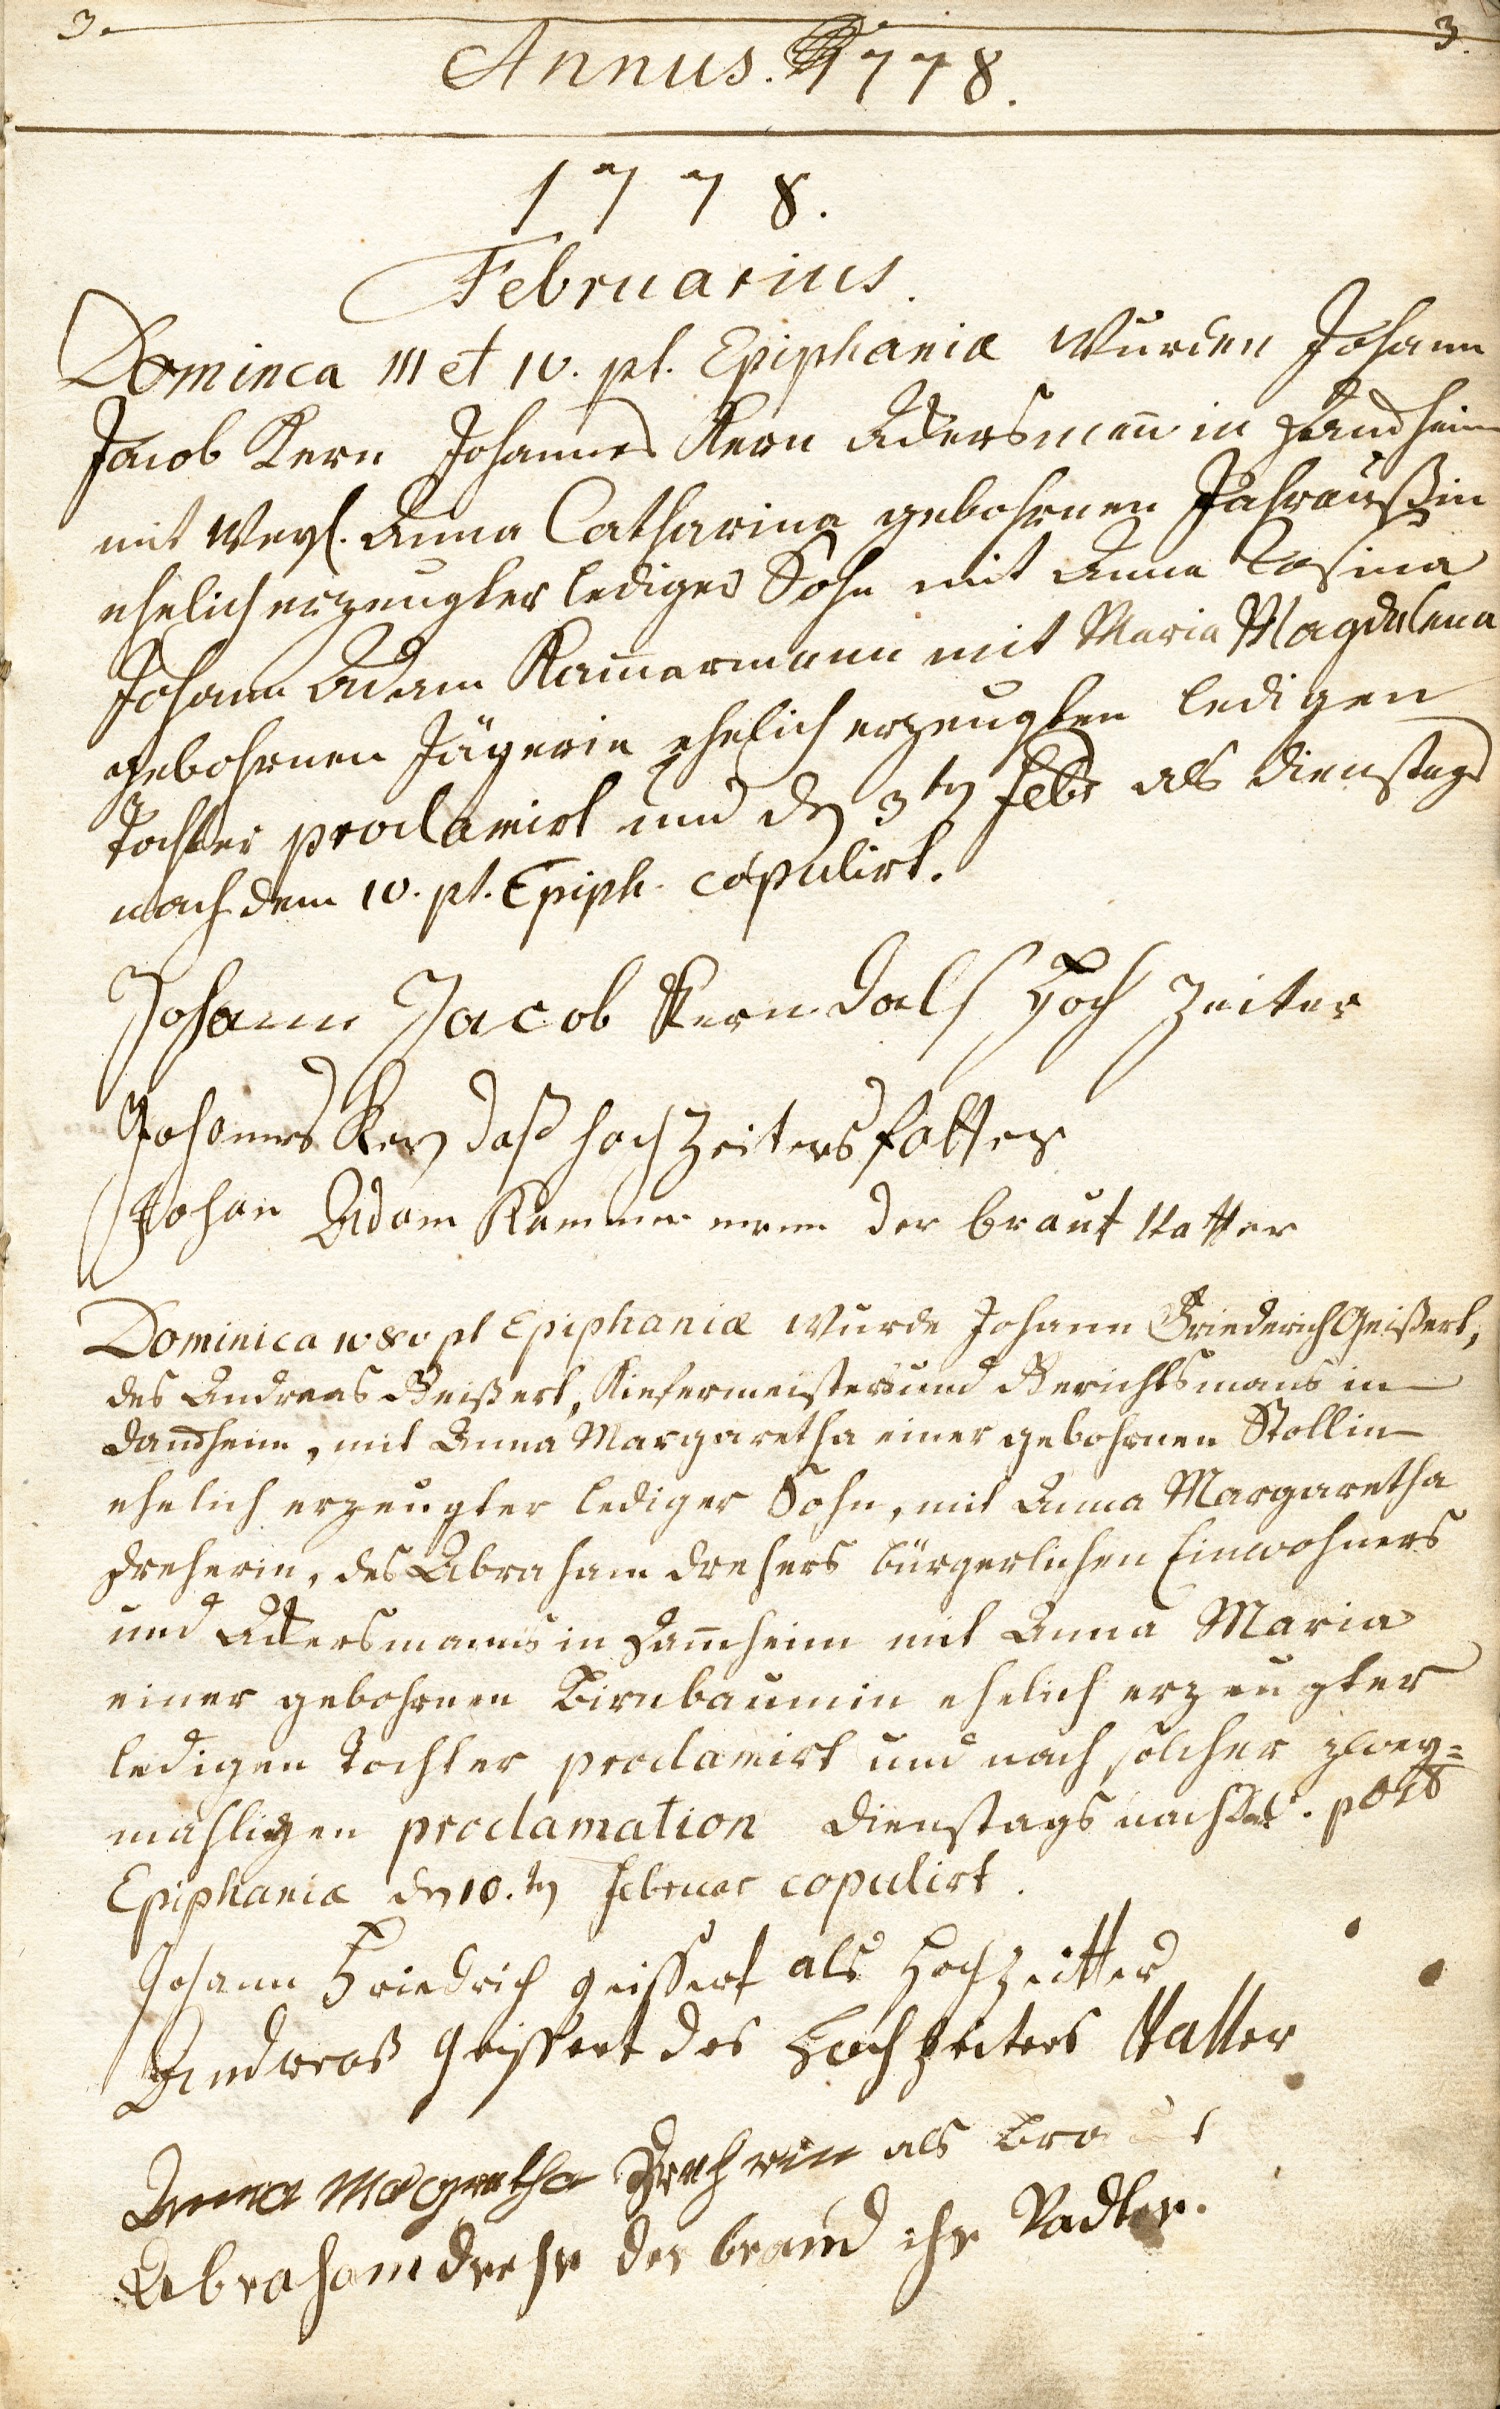 3. 3.
Annus. 1778.
1778.
Februarius.
Dominca III et IV. pt. Epiphaniæ wurden Johann
Jacob Kern Johannes Kern Ackersmañ in Damheim
mit Weyl. Anna Catharina gebohrnen
ehelich erzeugter lediger Sohn mit Anna Rosina
Johann Adam Kam̄ermann mit Maria Magdalena
gebohrnen Jägerin ehelich erzeugten ledigen
Tochter proclamirt und den 3ten Febr als Dienstags
nach dem IV. pt. Epiph. copulirt.
Johann Jacob Kern dals Hoch Zeiter
Johannes Kern daß hoch Zeiters fatter
Johan Adam Kammermann der braut Vatter
Dominica IV & V pt Epiphaniæ wurde Johann Friederich Geißert,
des Andreas Geißert, Kiefermeisters und Gerichtsmans in
Damheim, mit Anna Margaretha einer gebohrnen Stollin
ehelich erzeugter lediger Sohn, mit Anna Margaretha
Dreherin, des Abraham Drehers bürgerlichen Einwohners
und Ackersmanns in Dam̄heim mit Anna Maria
einer gebohrnen Birnbaumin ehelich erzeugter
ledigen Tochter proclamirt und nach solcher zwey=
mahligen proclamation Dienstags nach post
Epiphaniæ den 10.ten Februar copulirt.
Johann Friedrich geissert als Hochzeitter
Andreas Geissert des Hochzeiters Vatter
Anna Margretha Drehrin als Braut
Abraham Drehr der braud ihr Vadter.